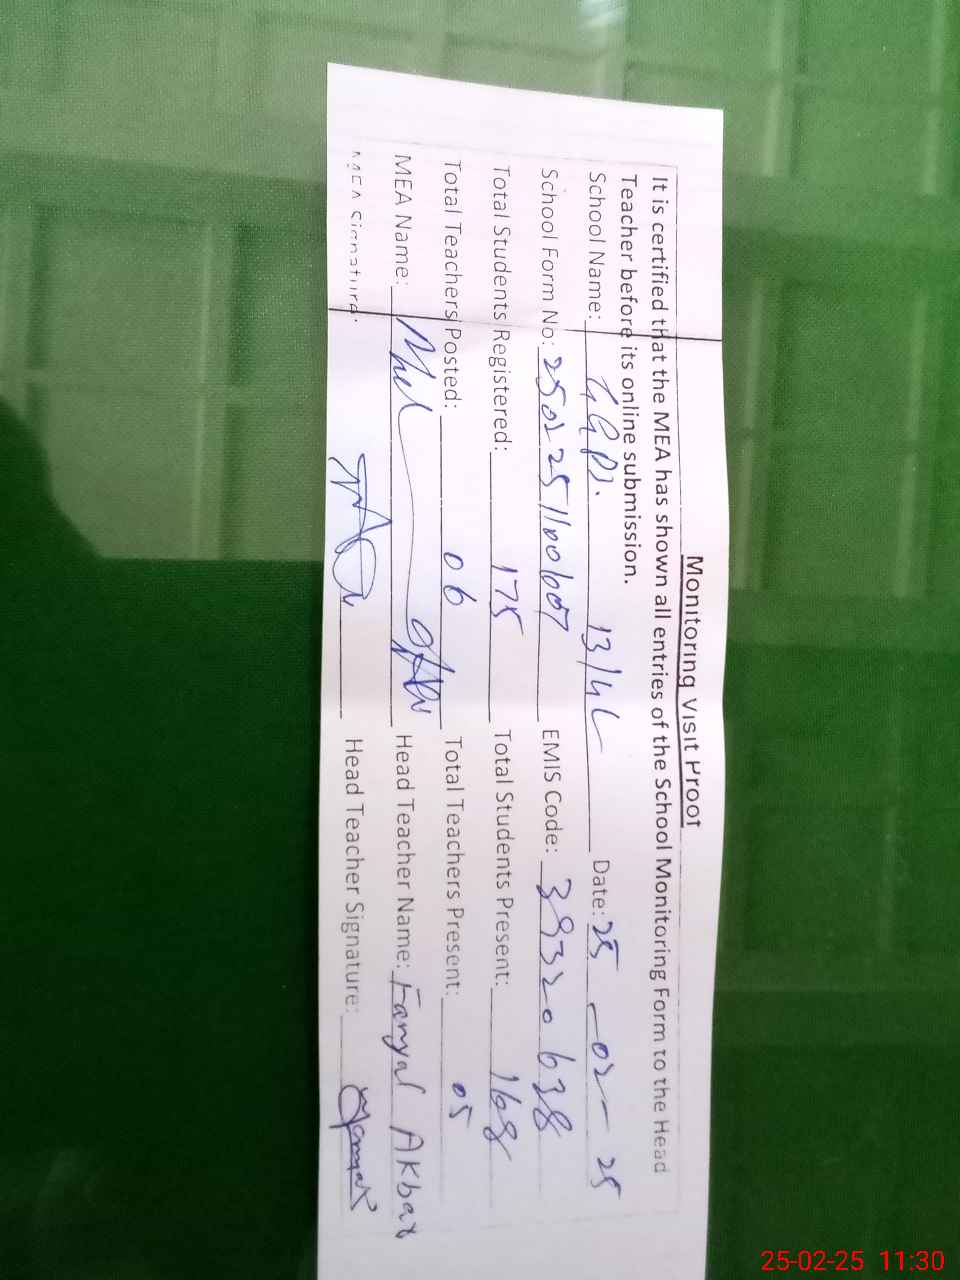 Monitoring Visit Proof
It is certified that the MEA has shown all entries of the School Monitoring Form to the Head
Teacher before its online submission.
School Name: GGPS. 13/4L Date: 25-02-25
School Form No: EMIS Code: 39320638
Total Students Registered: 175 Total Students Present: 168
Total Teachers Posted: 06 Total Teachers Present: 05
MEA Name: Head Teacher Name: Fanyal Akbar
MEA Signature: Head Teacher Signature:
25-02-25 11:30